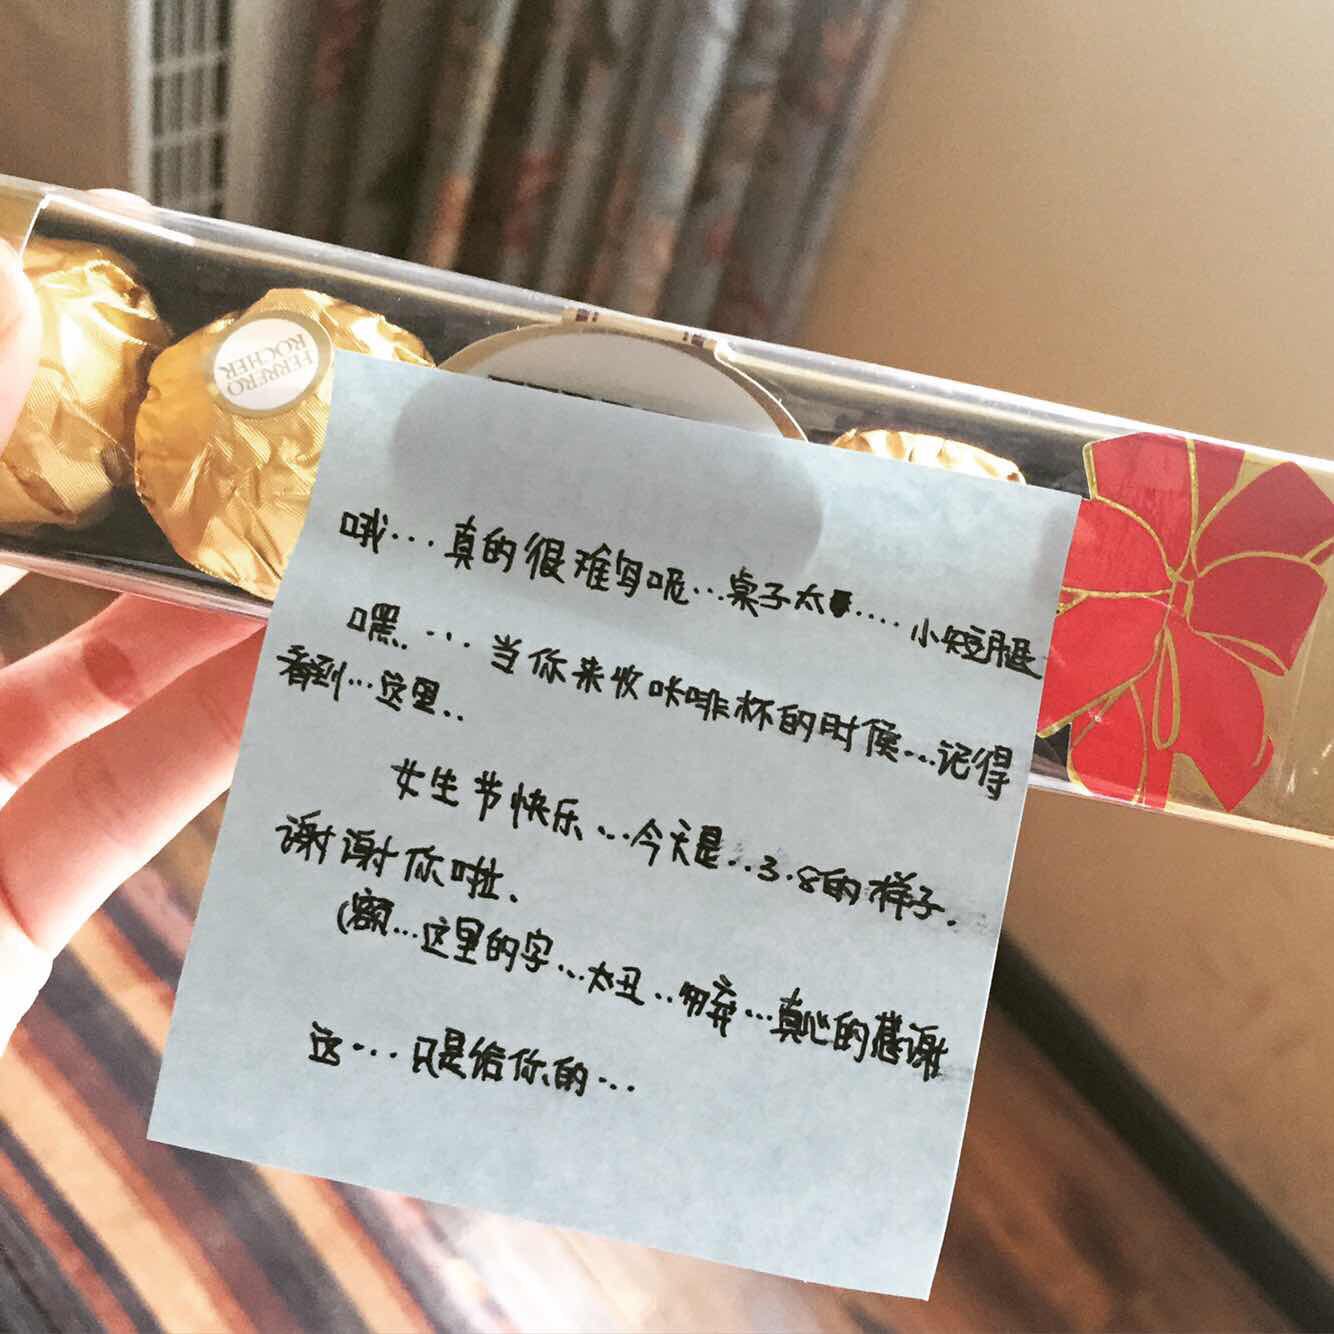 FERRERO
ROCHER
哦...真的很难写呢...桌子太....小短腿
嘿...当你来收咖啡杯的时候...记得
看到...这里..
女生节快乐...今天是..3.8的样子.
谢谢你啦.
(额...这里的字...太丑..嘞...真心的感谢
这...只是给你的...